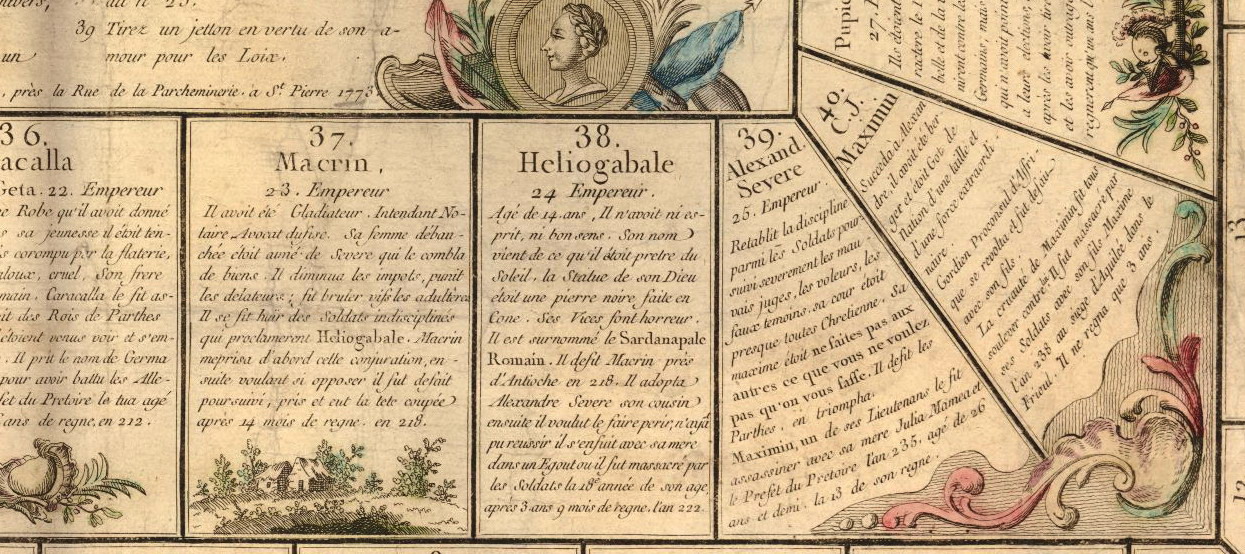 dit n° 23.
39 Tirez un jetton en vertu de son a-
un mour pour les Loix.
, près la Rue de la Parcheminerie. a St. Pierre 1773
36.
acalla
Geta. 22. Empereur
e Robe qu'il avoit donné
s sa jeunesse il étoit ten-
s corompu par la flaterie,
aloux, cruel. Son frere
main. Caracalla le fit as-
it des Rois de Parthes
étoient venus voir et s'em-
. Il prit le nom de Germa
pour avoir battu les Alle-
fet du Pretoire le tua agé
ans de regne, en 212.
37.
Macrin,
23. Empereur
Il avoit été Gladiateur. Intendant No-
taire Avocat du fisc. Sa femme débau-
chée étoit aimé de Severe qui le combla
de biens. Il diminua les impots, punit
les delateurs; fit bruler vifs les adultères
Il se fit hair des Soldats indisciplinés
qui proclamerent Heliogabale. Macrin
meprisa d'abord celle conjuration, en-
suite voulant si opposer il fut defait
poursuivi, pris et eut la tete coupée
apres 14 mois de regne. en 218.
38.
Heliogabale
24 Empereur.
Agé de 14 ans, Il n'avoit ni es-
prit, ni bon sens. Son nom
vient de ce qu'il étoit pretre du
Soleil. la Statue de son Dieu
etoit une pierre noire faite en
Cone. Ses Vices font horreur.
Il est surnommé le Sardanapale
Romain. Il defit Macrin près
d'Antioche en 218. Il adopta
Alexandre Severe son cousin
ensuite il voulut le faire perir, n'aya͂t
pu reussir il s'enfuit avec sa mere
dans un Egout ou il fut massacré par
les Soldats la 18e année de son age
après 3 ans 9 mois de regne. l'an 222.
39.
Alexand.
Severe
25. Empereur.
Retablit la discipline
parmi les Soldats pour-
suivi severement les mau
vais juges, les voleurs, les
faux temoins. sa cour étoit
presque toutes Chretienne. Sa
maxime étoit ne faites pas aux
autres ce que vous ne voulez
pas qu'on vous fasse. Il defit les
Parthes. en triompha.
Maximin, un de ses Lieutenans le fit
assassiner avec sa mere Julia Mamea et
le Prefet du Pretoire l'an 235. agé de 26
ans et demi. la 13 de son regne.
40.
C. J.
Maximin
Succeda a Alexan
dre, il avoit été ber
ger et étoit Got de
Nation d'une taille et
d'une force extraordi-
naire. Proconsul d'Affri-
Gordien
que se rendit et fut défait
avec son fils.
La cruauté de Maximin fit tous
soulever contre lui. Il fut massacré par
ses Soldats avec son fils Maxime
l'an 238 au siege d'Aquilée dans le
Frioul. Il ne regna que 3 ans.
Pupie
27.
Ils étoient
ractere le
belle et de la
miront contre les
Germans, mais
qui n'avoit point
a leurs elections,
après les avoir tire
et les avoir outragé
regnerent qu'un ans
13
12